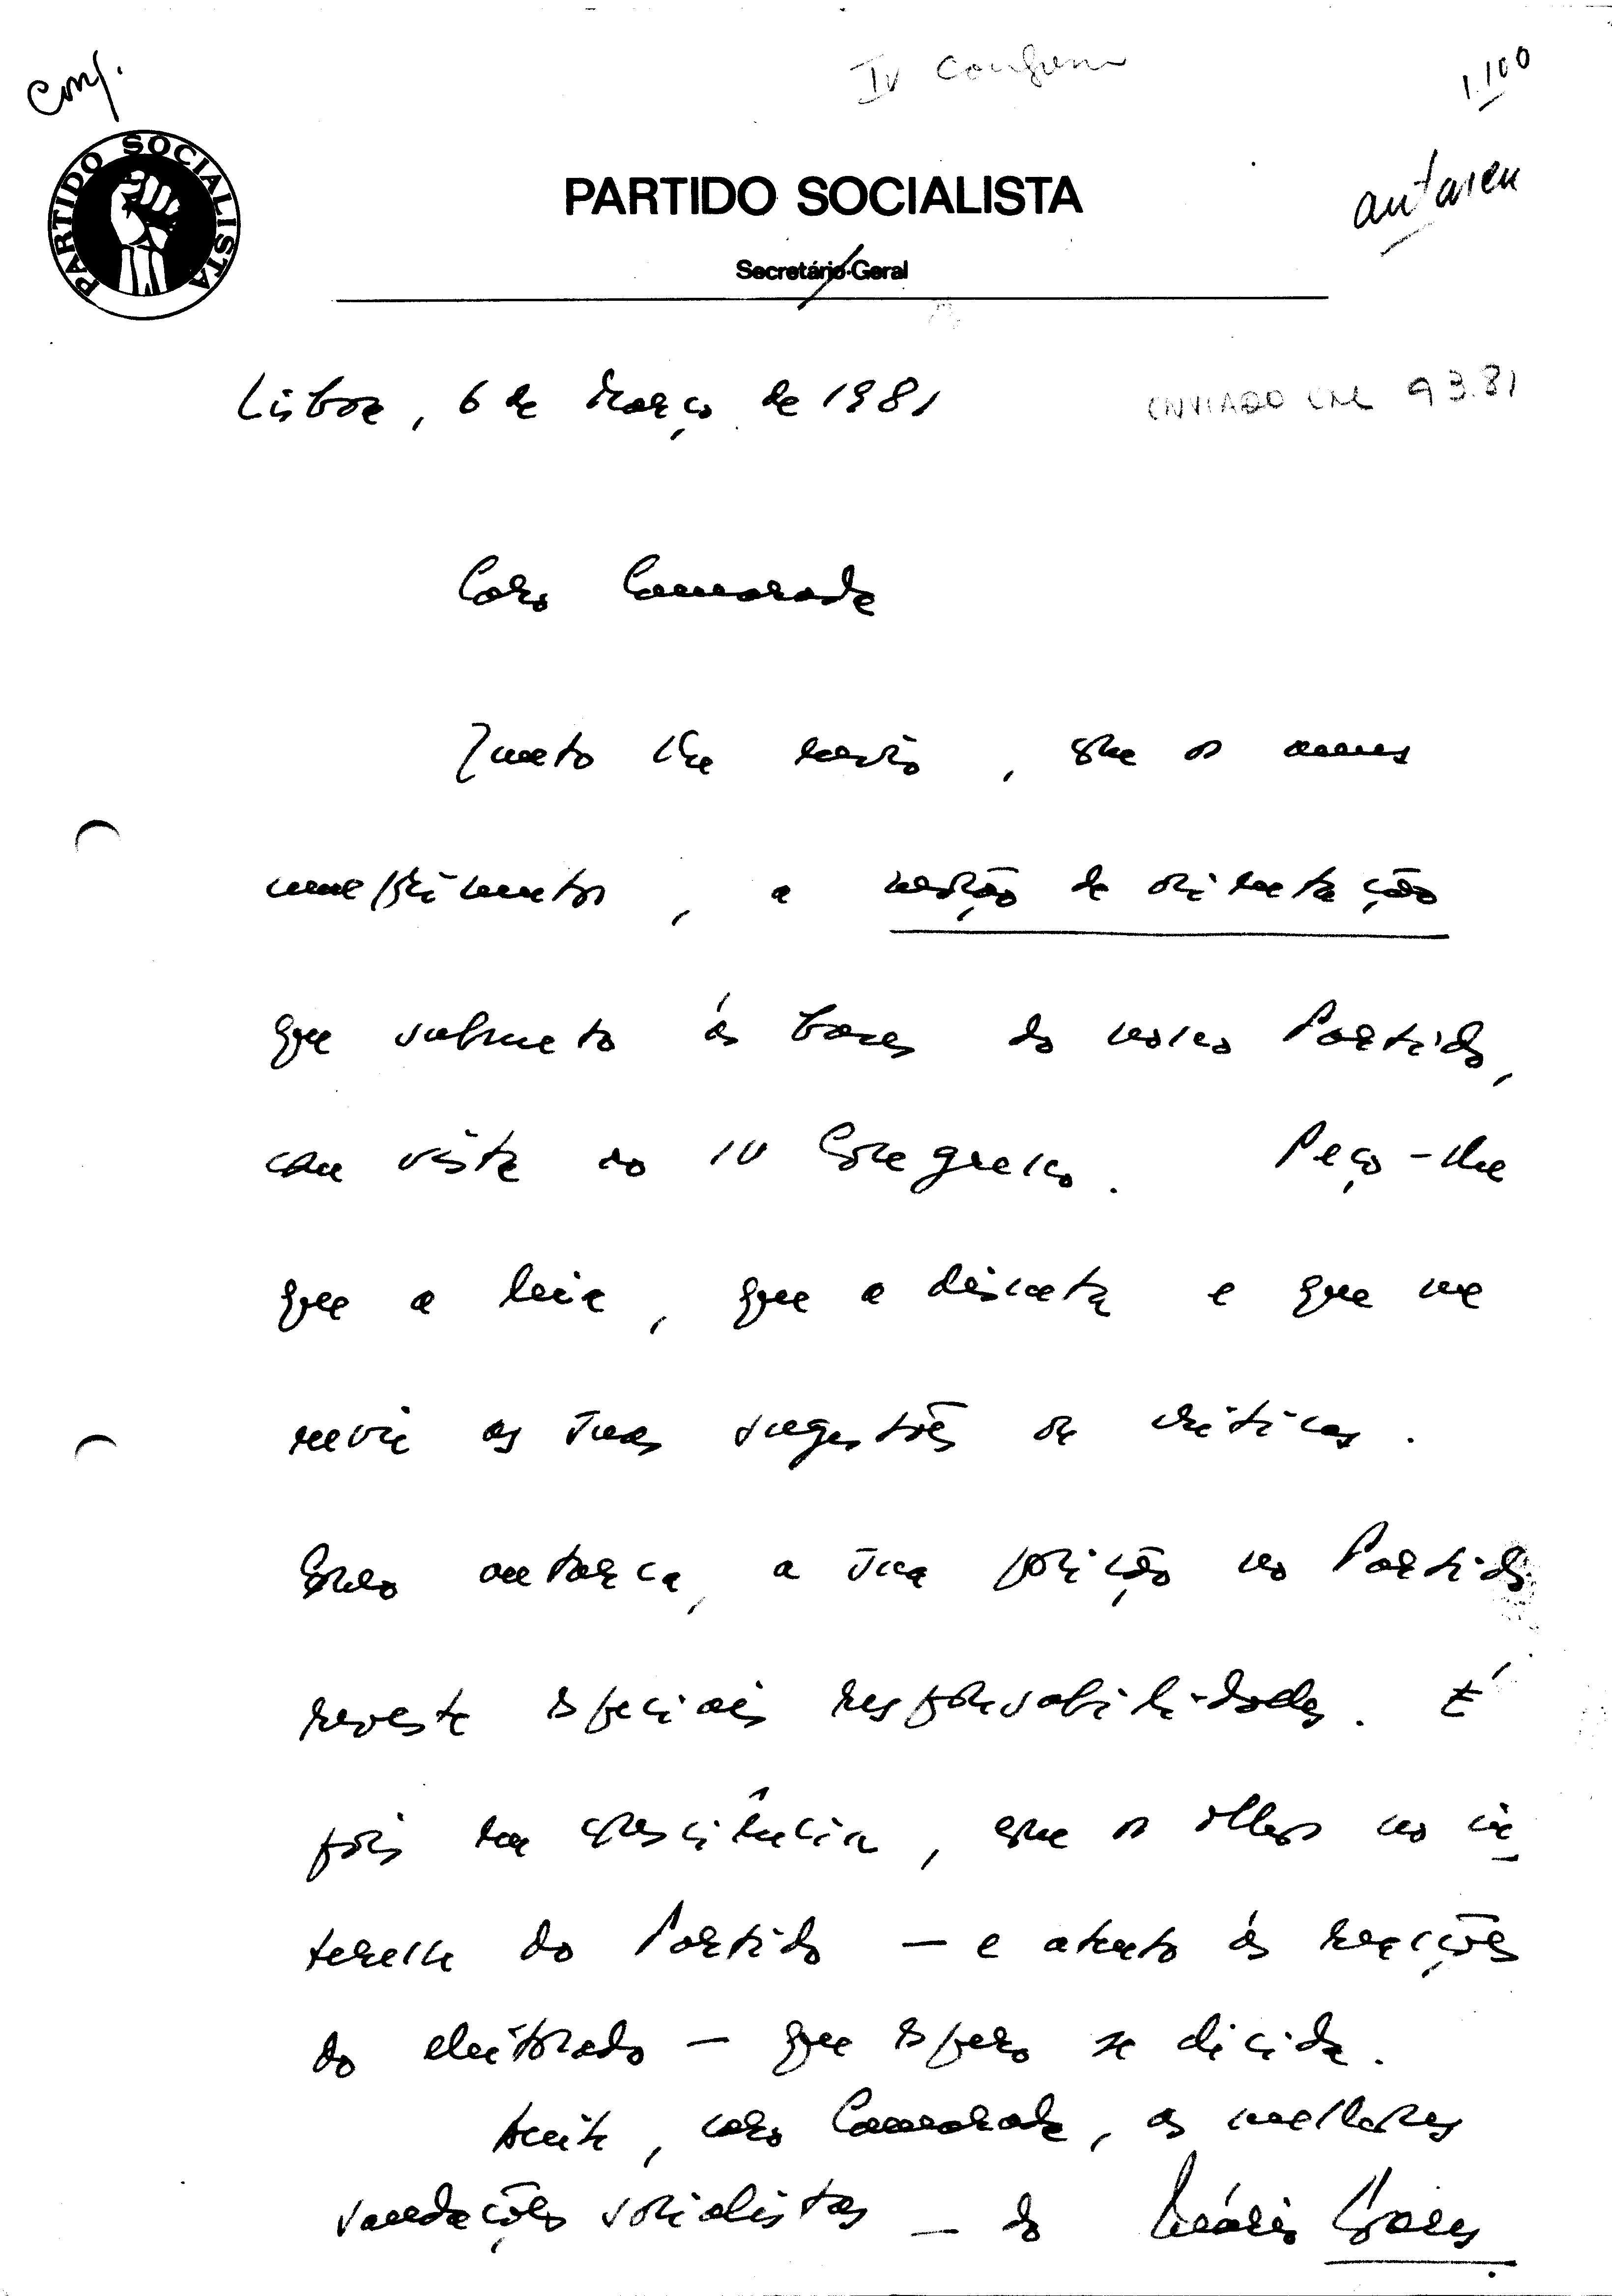 Conf.
IV Congresso
1.100
autarca
PARTIDO SOCIALISTA
PARTIDO SOCIALISTA
Secretário-Geral
Lisboa, 6 de Março de 1981
ENVIADO EM 9 3.81
Caro Camarada
Junto lhe envio, com os meus
cumprimentos, a moção de orientação
que submeto às bases do nosso Partido,
com vista ao IV Congresso. Peço-lhe
que a leia, que a discuta e que me
envie as suas sugestões ou críticas.
Como autarca, a sua posição no Partido
reveste especiais responsabilidades. É
pois em consciência, com os olhos no in
teresse do Partido — e atento às reacções
do eleitorado — que espero se decida.
Aceite, caro Camarada, as melhores
saudações socialistas — do Mário Soares